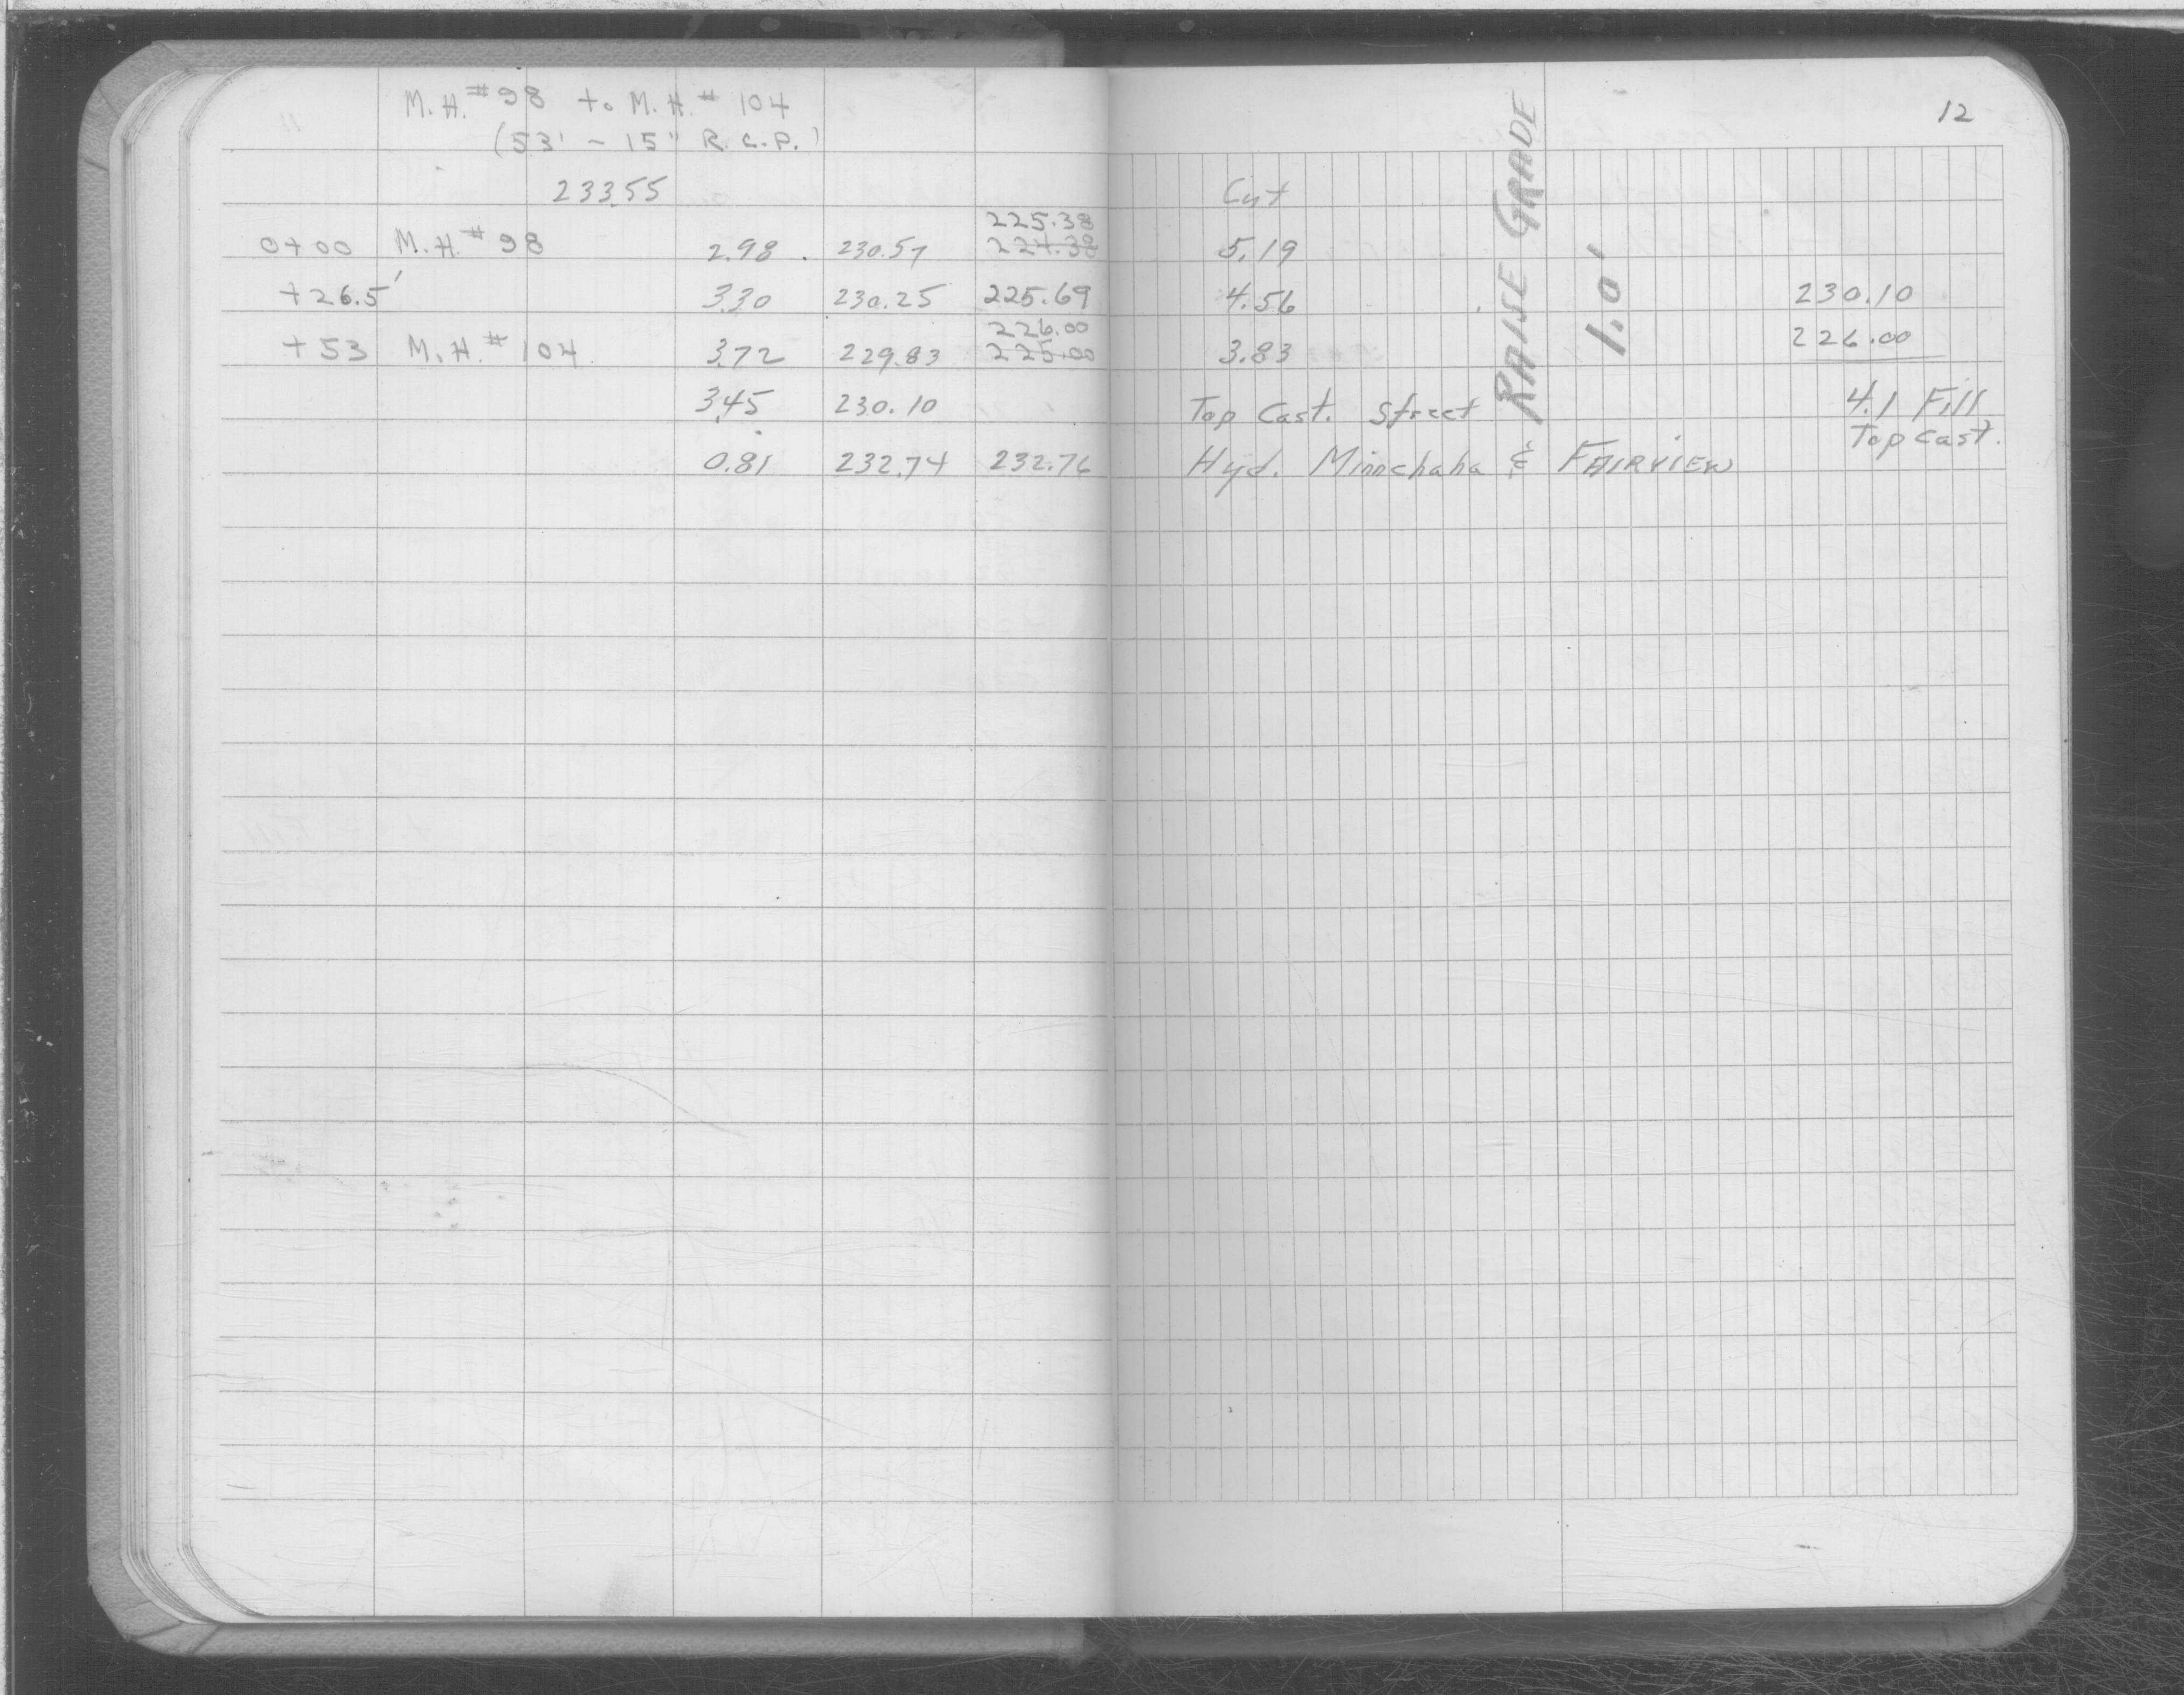 M.H. #98 to M.H. # 104
(53' - 15" R.C.P.)
12
233.55 Cut
225.38
0+00 M.H. #98 2.98 230.57 224.38 5.19
+26.5' 3.30 230.25 225.69 4.56 230.10
226.00
+53 M.H. # 104 3.72 229.83 225.00 3.83 226.00
3.45 230.10 Top Cast. Street 4.1 Fill
Top Cast.
0.81 232.74 232.76 Hyd. Minnehaha & FAIRVIEW
RAISE GRADE
1.0'